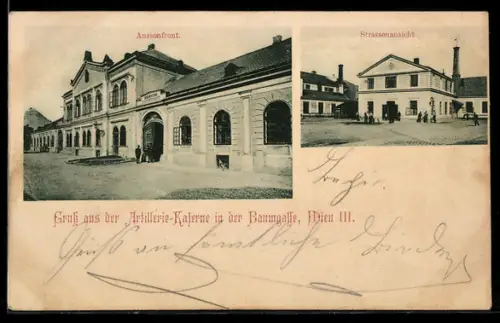 Aussenfront.
Strassenansicht
Gruß aus der Artillerie-Kaserne in der Baumgasse, Wien III.
Gruß an sämtliche